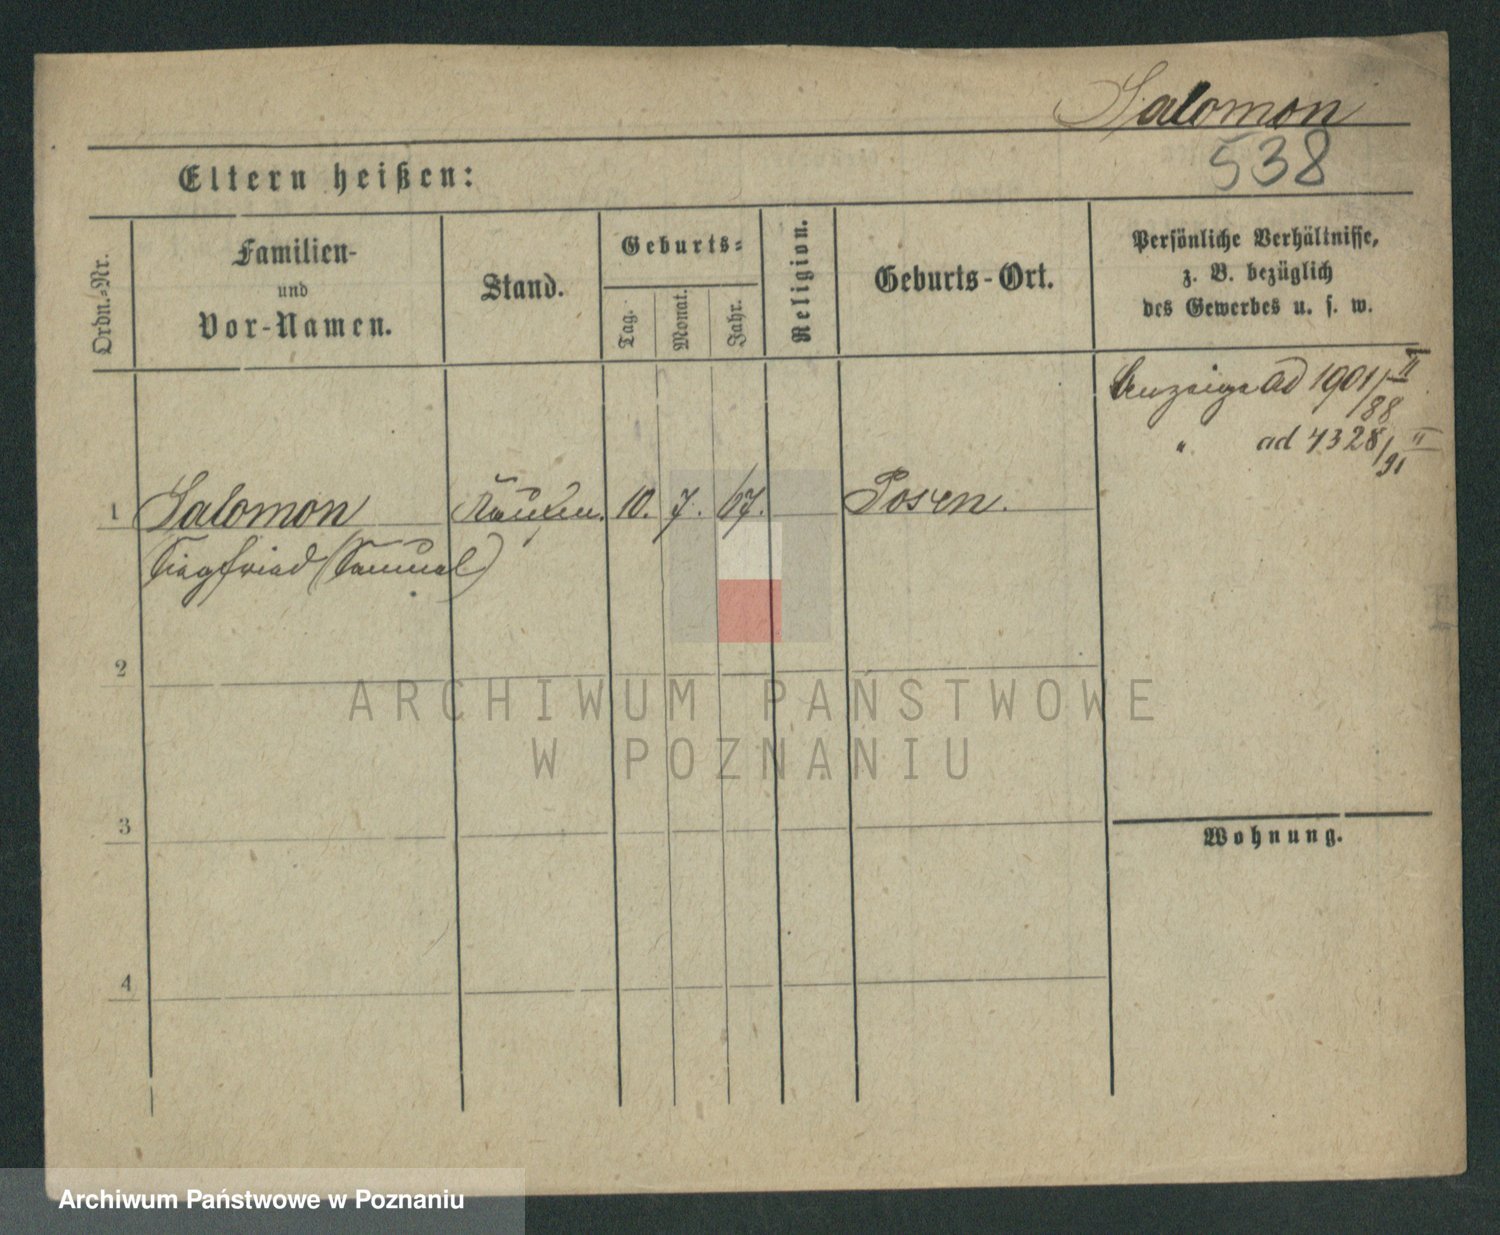 Salomon
538
Eltern heißen:
Ordn.-Nr.
Familien-
und
Vor-Namen.
Stand.
Geburts-
Tag.
Monat.
Jahr.
Religion.
Geburts-Ort.
Persönliche Verhältnisse,
z. B. bezüglich
des Gewerbes u. s. w.
Anzeige ad 1901/II
88
" ad 4328/II
91
1 Salomon Kaufm. 10. 7. 67. Posen.
Siegfried (Samuel)
2
3
4
Wohnung.
ARCHIWUM PAŃSTWOWE
W POZNANIU
Archiwum Państwowe w Poznaniu